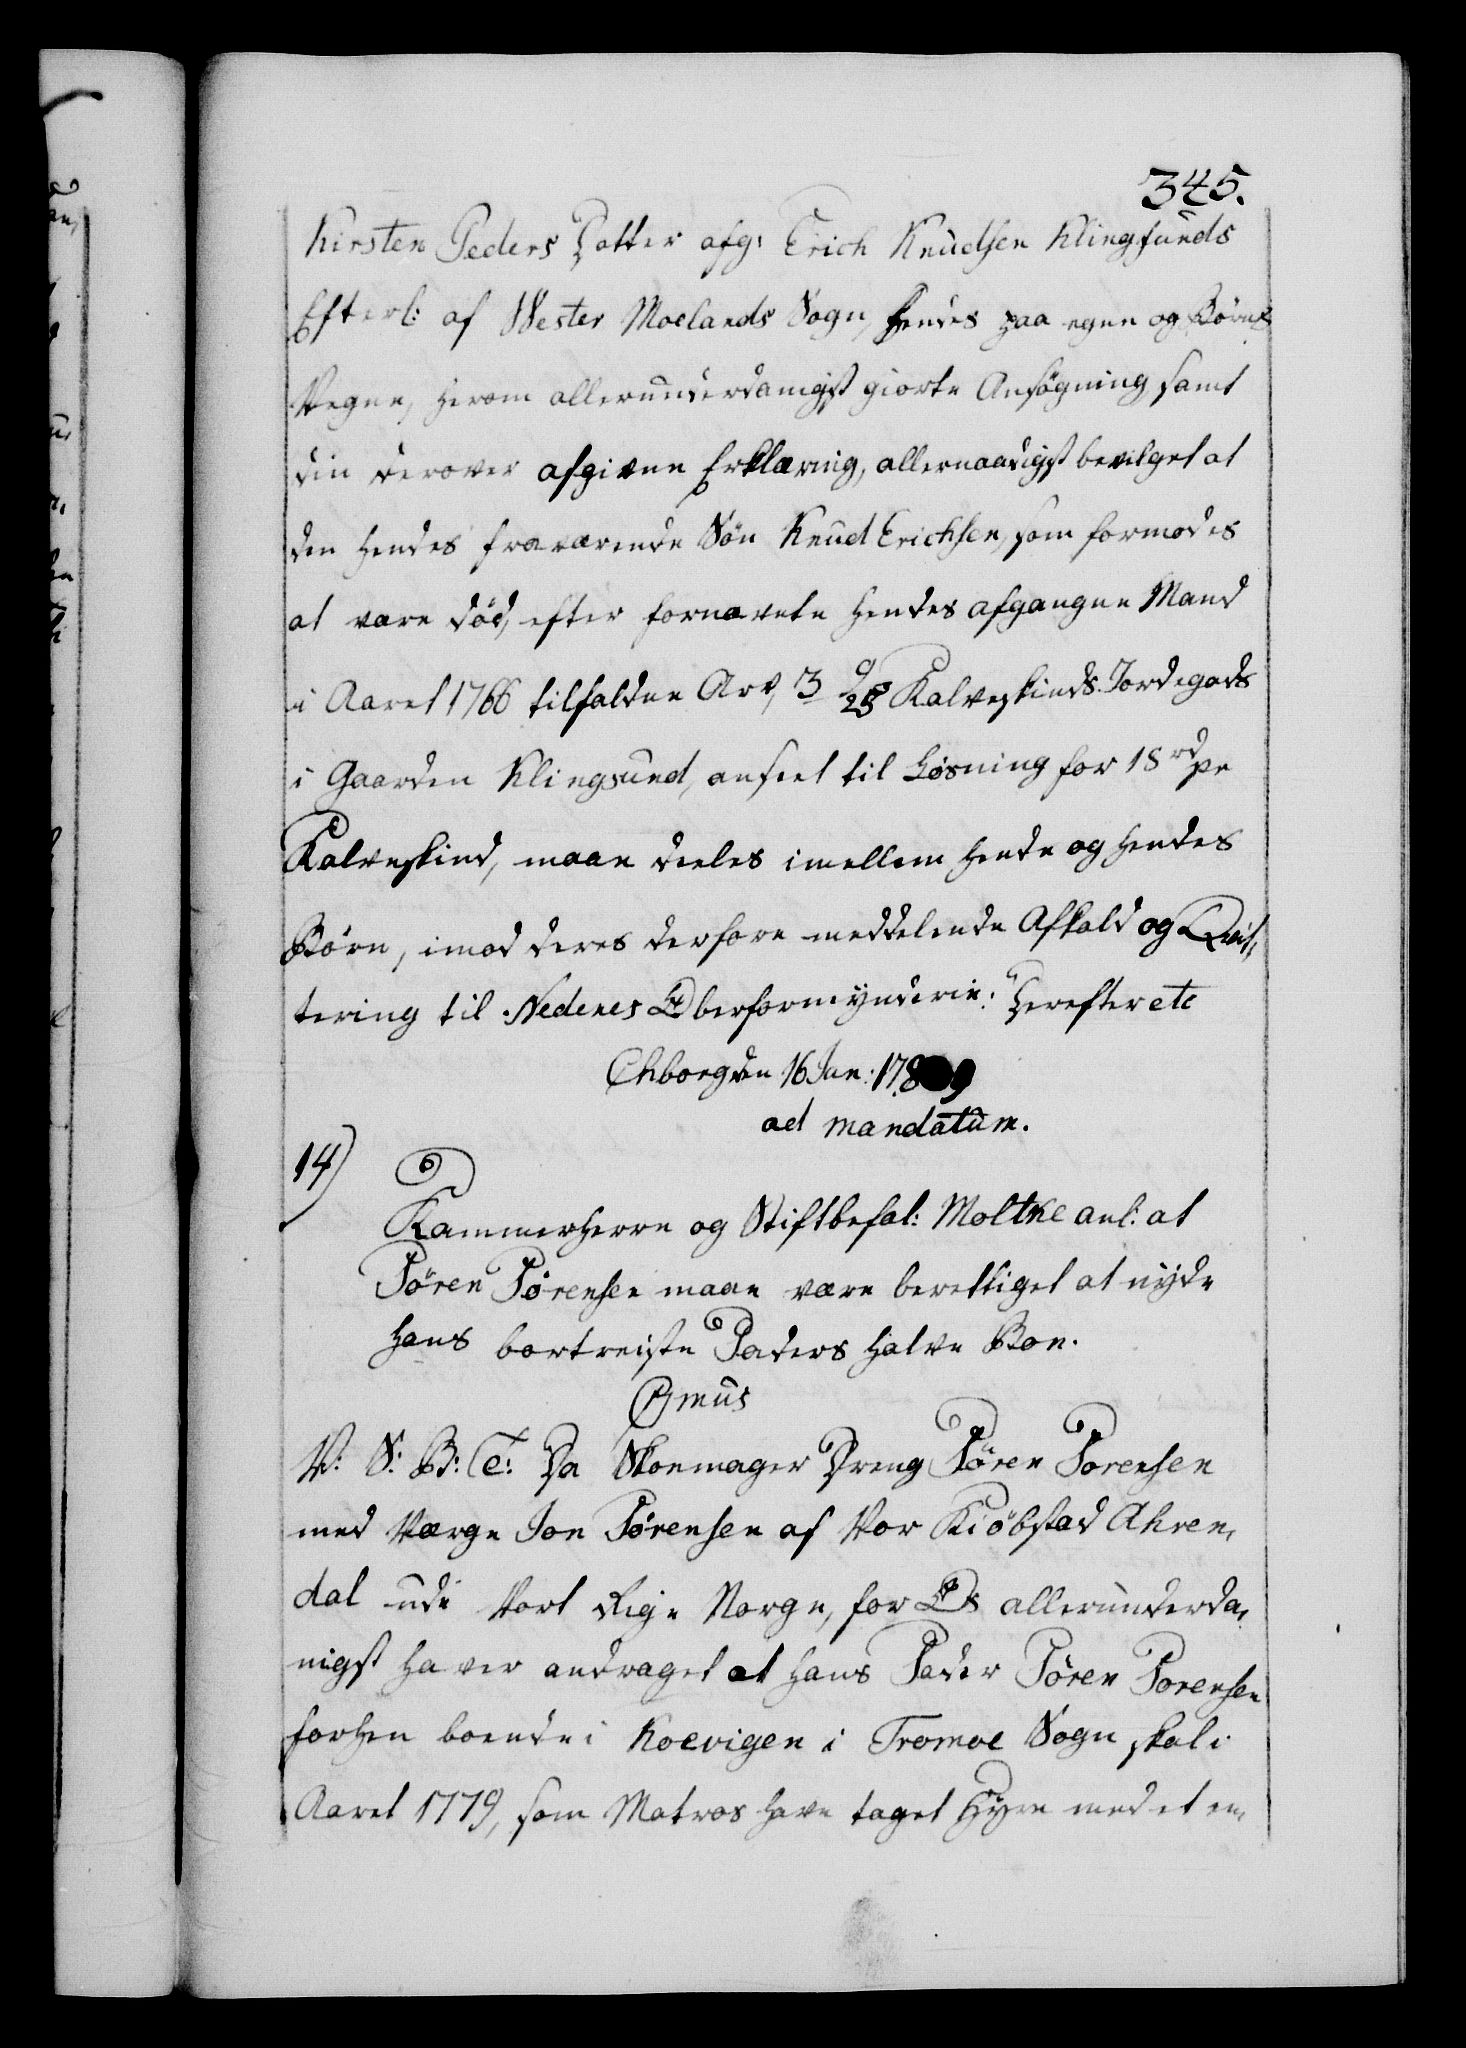 345.
Kirsten Peders Datter afg: Erich Knudsen Klingsunds
Efterl: af Wester Moelands Sogn, hendes paa egne og Børnes
Vegne, herom allerunderdanigst giorte Ansøgning, samt
din derover afgivne Erklæring, allernaadigst bevilget at
den hendes fraværende Søn Knud Erichsen, som formodes
at være død, efter fornævnte hendes afgangne Mand
i Aaret 1766 tilfaldne Arv, 3 9/25 Kalveskinds Jordegods
i Gaarden Klingsund, anseet til Løsning for 18 rd pr
Kalveskind, maae deeles imellem hende og hendes
Børn, imod deres derfore meddelende Afkald og Qvit,
tering til Nedenes Overformynderie: Derefter etc
Chborg den 16 Jan: 1789
ad mandatum.
14)
Kammerherre og Stiftbefal: Moltke anl: at
Søren Sørensen maae være berettiget at nyde
hans bortreiste Faders halve Boe.
C7mus
V: S: B: T: Da Skoemager Dreng Søren Sørensen
med Værge Jon Sørensen af Vor Kiøbstad Ahren,
dal udi Vort Rige Norge, for Os allerunderda,
nigst haver andraget at hans Fader Søren Sørensen
forhen boende i Koevigen i Tromoe Sogn skal i
Aaret 1779, som Matros have taget Hyre med et en,